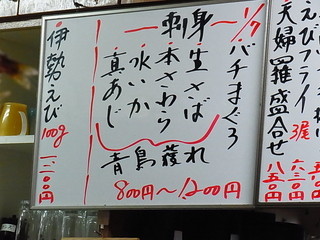 えびフライ 3尾 八五〇円
天婦羅盛合せ
刺身 1/7
バチまぐろ
生さば
本さわら
水いか
真あじ
青島獲れ
800円〜1200円
伊勢えび 100g 一二〇〇円